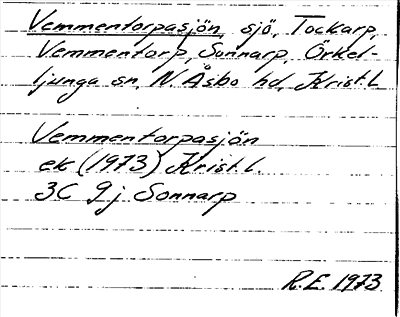 Vemmentorpasjön, sjö, Tockarp,
Vemmentorp, Sonnarp, Örkel-
ljunga sn, N. Åsbo hd, Krist. L.
Vemmentorpasjön
ek (1973) Krist. l.
3C 9j Sonnarp
R.E. 1973